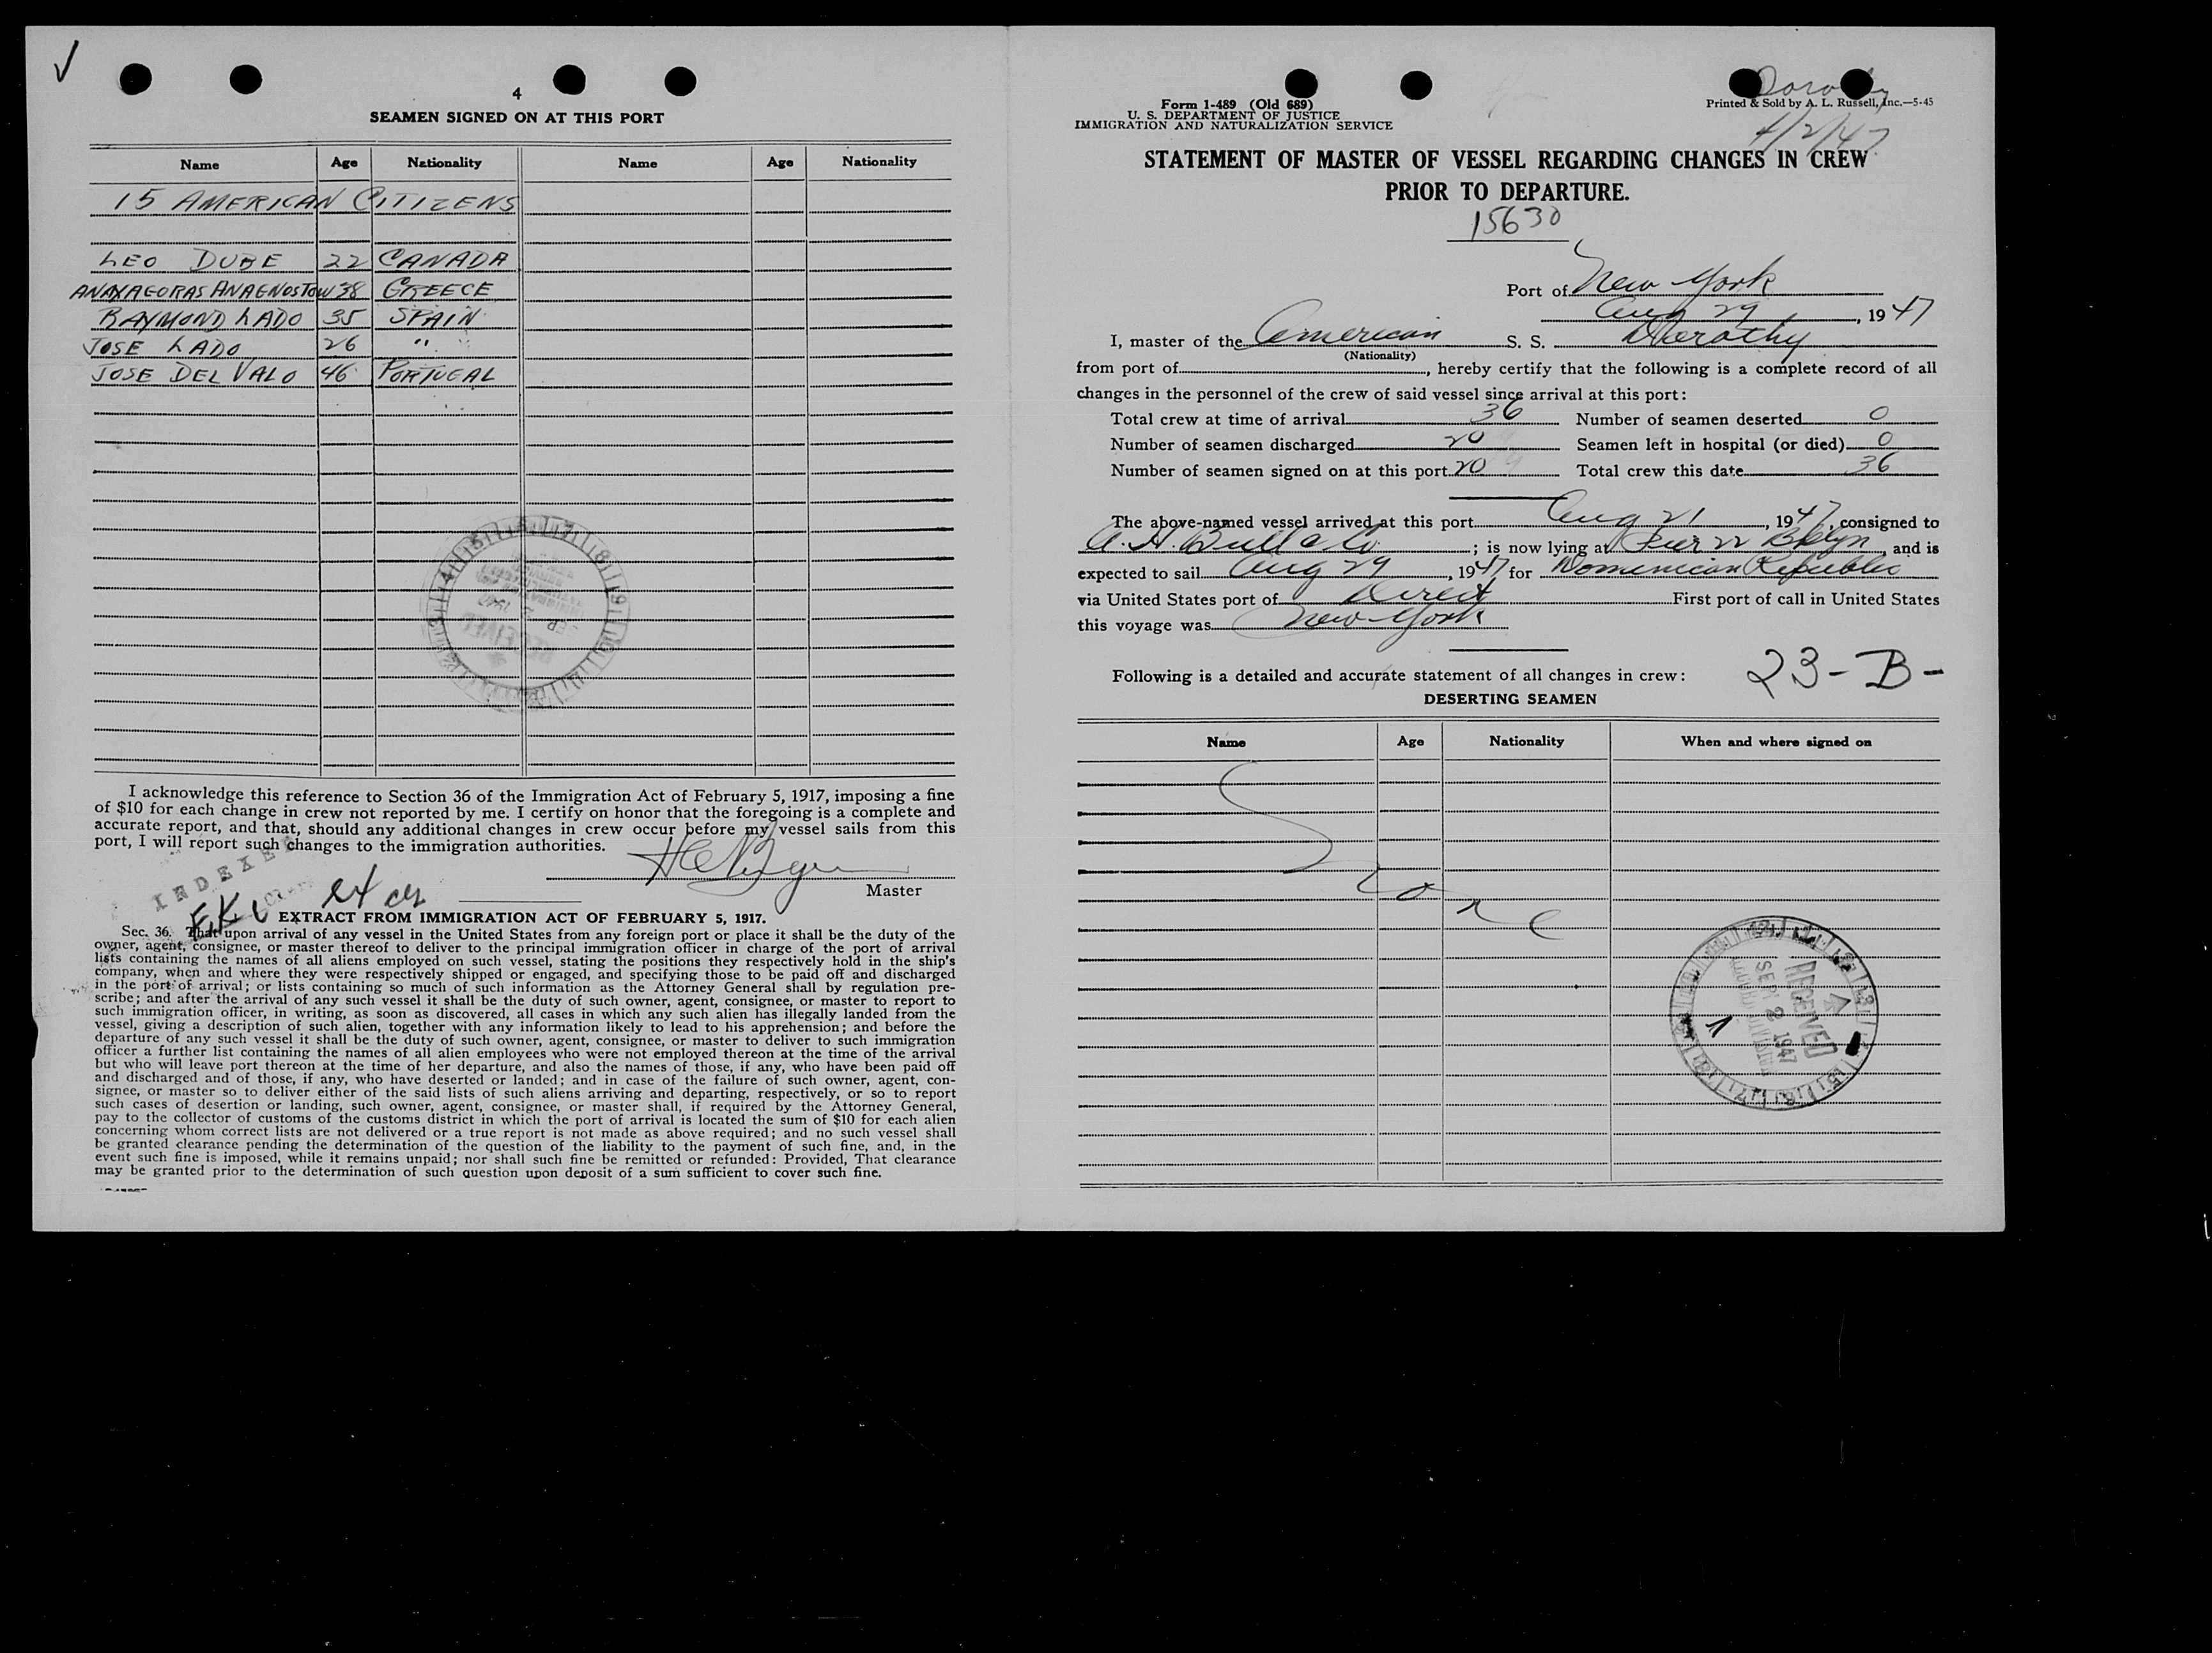 4
SEAMEN SIGNED ON AT THIS PORT
Name Age Nationality Name Age Nationality
15 AMERICAN CITIZENS
LEO DUBE 22 CANADA
ANAXAGORAS ANAGNOSTOU 38 GREECE
RAYMOND LADO 35 SPAIN
JOSE LADO 26 " "
JOSE DEL VALO 46 PORTUGAL
I acknowledge this reference to Section 36 of the Immigration Act of February 5, 1917, imposing a fine
of $10 for each change in crew not reported by me. I certify on honor that the foregoing is a complete and
accurate report, and that, should any additional changes in crew occur before my vessel sails from this
port, I will report such changes to the immigration authorities.
Master
INDEXED
EXTRACT FROM IMMIGRATION ACT OF FEBRUARY 5, 1917.
Sec. 36. That upon arrival of any vessel in the United States from any foreign port or place it shall be the duty of the
owner, agent, consignee, or master thereof to deliver to the principal immigration officer in charge of the port of arrival
lists containing the names of all aliens employed on such vessel, stating the positions they respectively hold in the ship's
company, when and where they were respectively shipped or engaged, and specifying those to be paid off and discharged
in the port of arrival; or lists containing so much of such information as the Attorney General shall by regulation pre-
scribe; and after the arrival of any such vessel it shall be the duty of such owner, agent, consignee, or master to report to
such immigration officer, in writing, as soon as discovered, all cases in which any such alien has illegally landed from the
vessel, giving a description of such alien, together with any information likely to lead to his apprehension; and before the
departure of any such vessel it shall be the duty of such owner, agent, consignee, or master to deliver to such immigration
officer a further list containing the names of all alien employees who were not employed thereon at the time of the arrival
but who will leave port thereon at the time of her departure, and also the names of those, if any, who have been paid off
and discharged and of those, if any, who have deserted or landed; and in case of the failure of such owner, agent, con-
signee, or master so to deliver either of the said lists of such aliens arriving and departing, respectively, or so to report
such cases of desertion or landing, such owner, agent, consignee, or master shall, if required by the Attorney General,
pay to the collector of customs of the customs district in which the port of arrival is located the sum of $10 for each alien
concerning whom correct lists are not delivered or a true report is not made as above required; and no such vessel shall
be granted clearance pending the determination of the question of the liability to the payment of such fine, and, in the
event such fine is imposed, while it remains unpaid; nor shall such fine be remitted or refunded: Provided, That clearance
may be granted prior to the determination of such question upon deposit of a sum sufficient to cover such fine.
Dorothy
Form 1-489 (Old 689)
U. S. DEPARTMENT OF JUSTICE
IMMIGRATION AND NATURALIZATION SERVICE
Printed & Sold by A. L. Russell, Inc.—5-45
STATEMENT OF MASTER OF VESSEL REGARDING CHANGES IN CREW
PRIOR TO DEPARTURE.
15630
Port of New York
Aug 29, 1947
I, master of the American S. S. Dorothy
(Nationality)
from port of, hereby certify that the following is a complete record of all
changes in the personnel of the crew of said vessel since arrival at this port:
Total crew at time of arrival 36 Number of seamen deserted 0
Number of seamen discharged 20 Seamen left in hospital (or died) 0
Number of seamen signed on at this port 20 Total crew this date 36
The above-named vessel arrived at this port Aug 21, 1947, consigned to
A. H. Bull & Co; is now lying at Pier 22 Bklyn, and is
expected to sail Aug 29, 1947 for Dominican Republic
via United States port of Direct First port of call in United States
this voyage was New York
Following is a detailed and accurate statement of all changes in crew: 23-B-
DESERTING SEAMEN
Name Age Nationality When and where signed on
None
RECEIVED
SEP 2 1947